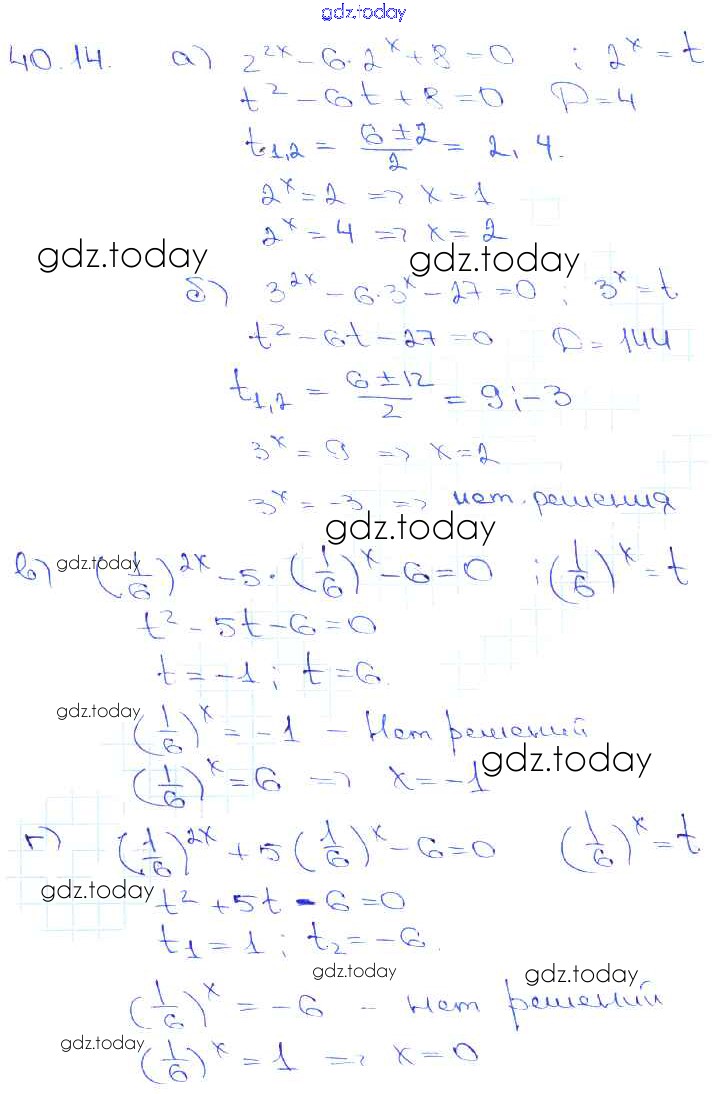 gdz.today
40.14. а) 2^{2x} – 6·2^x + 8 = 0 ; 2^x = t
t² – 6t + 8 = 0 D = 4
t_{1,2} = \frac{6 ± 2}{2} = 2, 4.
2^x = 2 => x = 1
2^x = 4 => x = 2
gdz.today gdz.today
б) 3^{2x} – 6·3^x – 27 = 0 ; 3^x = t
t² – 6t – 27 = 0 D = 144
t_{1,2} = \frac{6 ± 12}{2} = 9 ; –3
3^x = 9 => x = 2
3^x = –3 => нет решения
gdz.today
в) gdz.today (\frac{1}{6})^{2x} – 5·(\frac{1}{6})^x – 6 = 0 ; (\frac{1}{6})^x = t
t² – 5t – 6 = 0
t = –1 ; t = 6.
gdz.today (\frac{1}{6})^x = –1 – Нет решений
(\frac{1}{6})^x = 6 => x = –1 gdz.today
г) (\frac{1}{6})^{2x} + 5(\frac{1}{6})^x – 6 = 0 (\frac{1}{6})^x = t
gdz.today t² + 5t – 6 = 0
t_1 = 1 ; t_2 = –6.
gdz.today gdz.today
(\frac{1}{6})^x = –6 – нет решений
gdz.today (\frac{1}{6})^x = 1 => x = 0